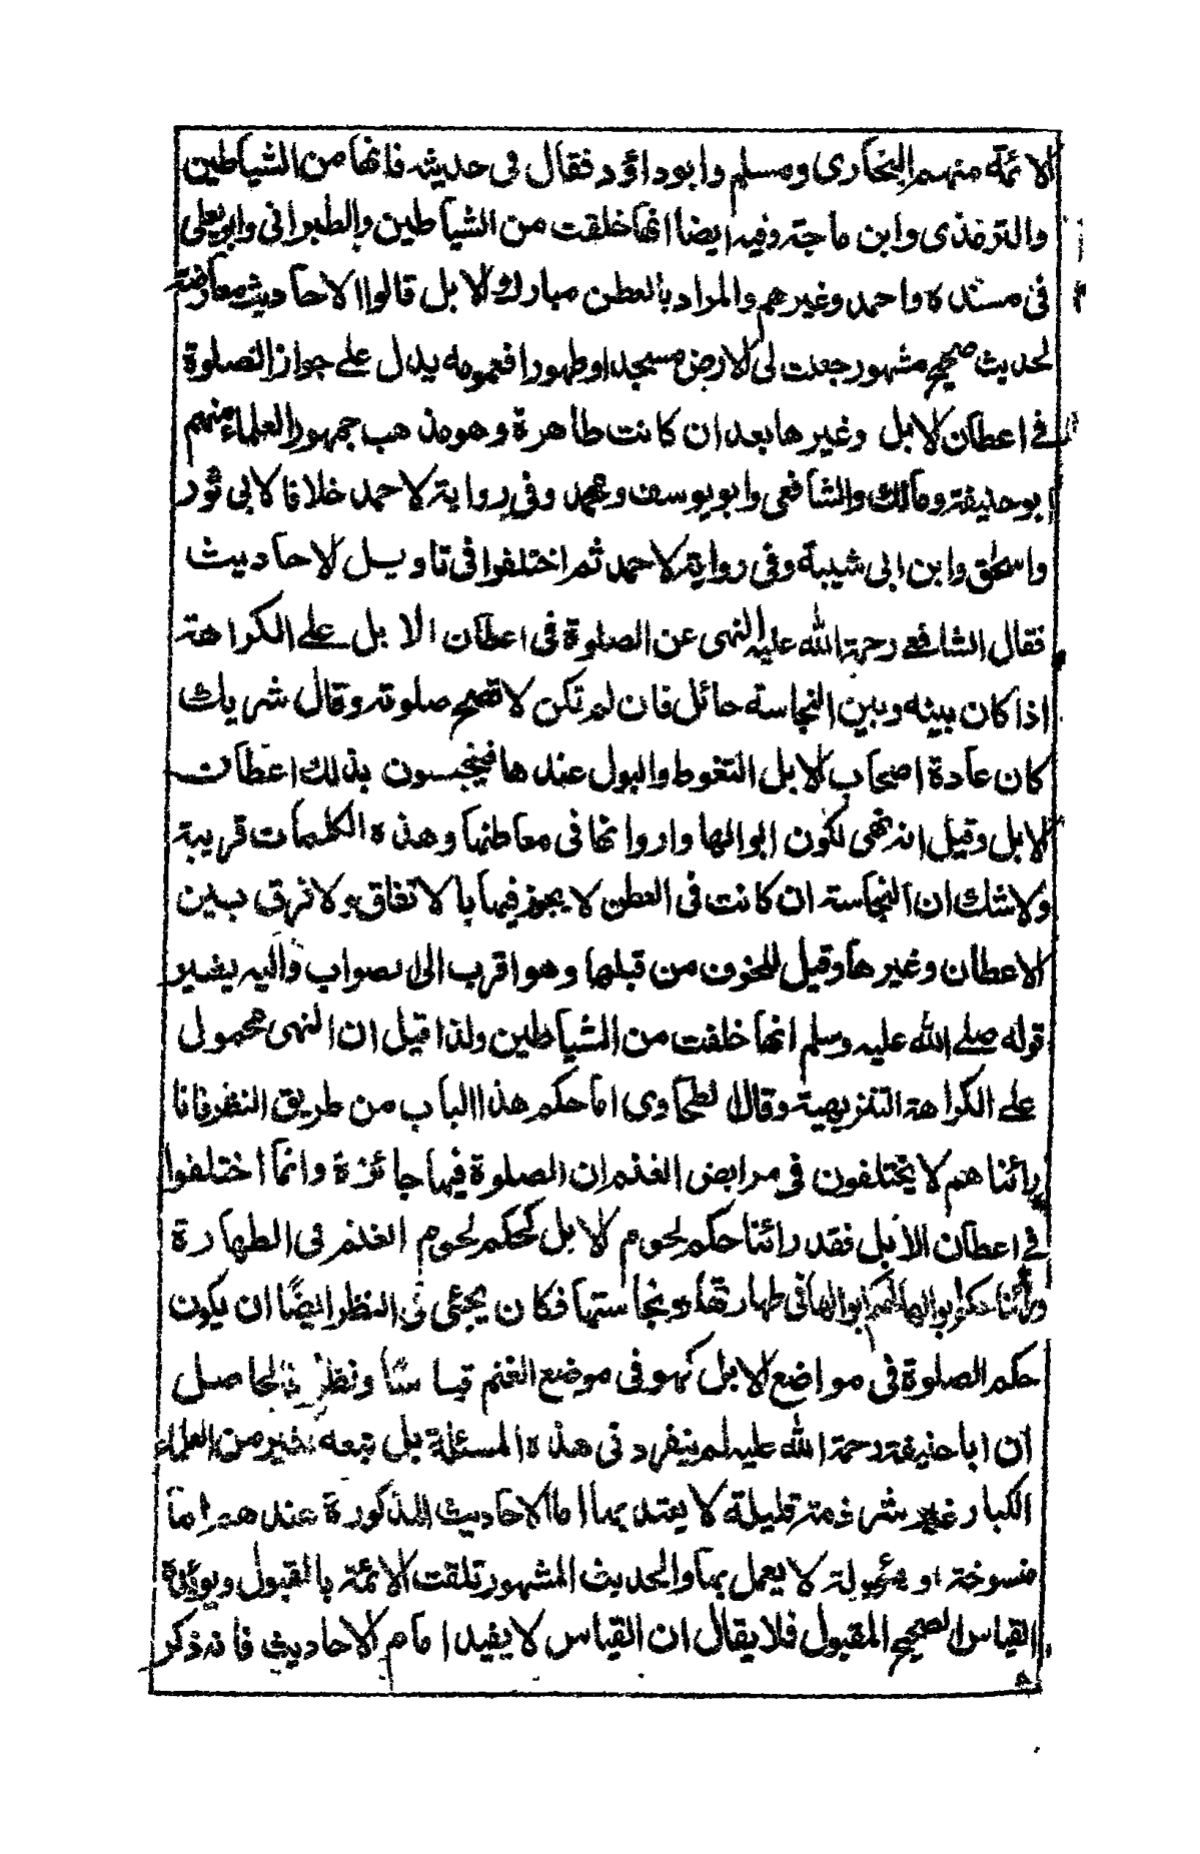 الائمة منهم البخارى ومسلم وابو داؤد فقال فى حديثه فانها من الشياطين
والترمذى وابن ماجة وفيه ايضا انها خلقت من الشياطين والطبرانى وابو يعلى
فى مسنده واحمد وغيرهم والمراد بالعطن مبارك الابل قالوا الاحاديث معارضة
لحديث صحيح مشهور جعلت لى الارض مسجدا وطهورا فعمومه يدل على جواز الصلوة
فى اعطان الابل وغيرها بعد ان كانت طاهرة وهو مذهب جمهور العلماء منهم
ابو حنيفة ومالك والشافعى وابو يوسف ومحمد وفى رواية لاحمد خلافا لابى ثور
واسحٰق وابن ابى شيبة وفى رواية لاحمد ثم اختلفوا فى تاويل الاحاديث
فقال الشافعى رحمة الله عليه النهى عن الصلوة فى اعطان الابل على الكراهة
اذا كان بينه وبين النجاسة حائل فان لم تكن لا تصح صلوته وقال شريك
كان عادة اصحاب الابل التغوط والبول عندها فينجسون بذلك اعطان
الابل وقيل انه نهى لكون ابوالها واروانها فى معاطنها وهذه الكلمات قريبة
ولا شك ان النجاسة ان كانت فى العطن لا يجوز فيها بالاتفاق ولا فرق بين
الاعطان وغيرها وقيل للخوف من قبلها وهو اقرب الى الصواب واليه يشير
قوله صلى الله عليه وسلم انها خلقت من الشياطين ولذا قيل ان النهى محمول
على الكراهة التنزيهية وقال الطحاوى اما حكم هذا الباب من طريق النظر فانا
رائنا هم لا يختلفون فى مرابض الغنم ان الصلوة فيها جائزة وانما اختلفوا
فى اعطان الابل فقد رائنا حكم لحوم الابل كحكم لحوم الغنم فى الطهارة
ورائنا حكم ابوالها كحكم ابوالها فى طهارتها ونجاستها فكان يجئى فى النظر ايضًا ان يكون
حكم الصلوة فى مواضع الابل كهو فى موضع الغنم قياسًا ونظرًا فالحاصل
ان ابا حنيفة رحمة الله عليه لم ينفرد فى هذه المسئلة بل تبعه كثير من العلماء
الكبار غير شرذمة قليلة لا يعتد بها اما الاحاديث المذكورة عندهم اما
منسوخة او مئولة لا يعمل بها والحديث المشهور تلقت الائمة بالقبول ويؤيدة
القياس الصحيح المقبول فلا يقال ان القياس لا يفيد امام الاحاديث فانه ذكر